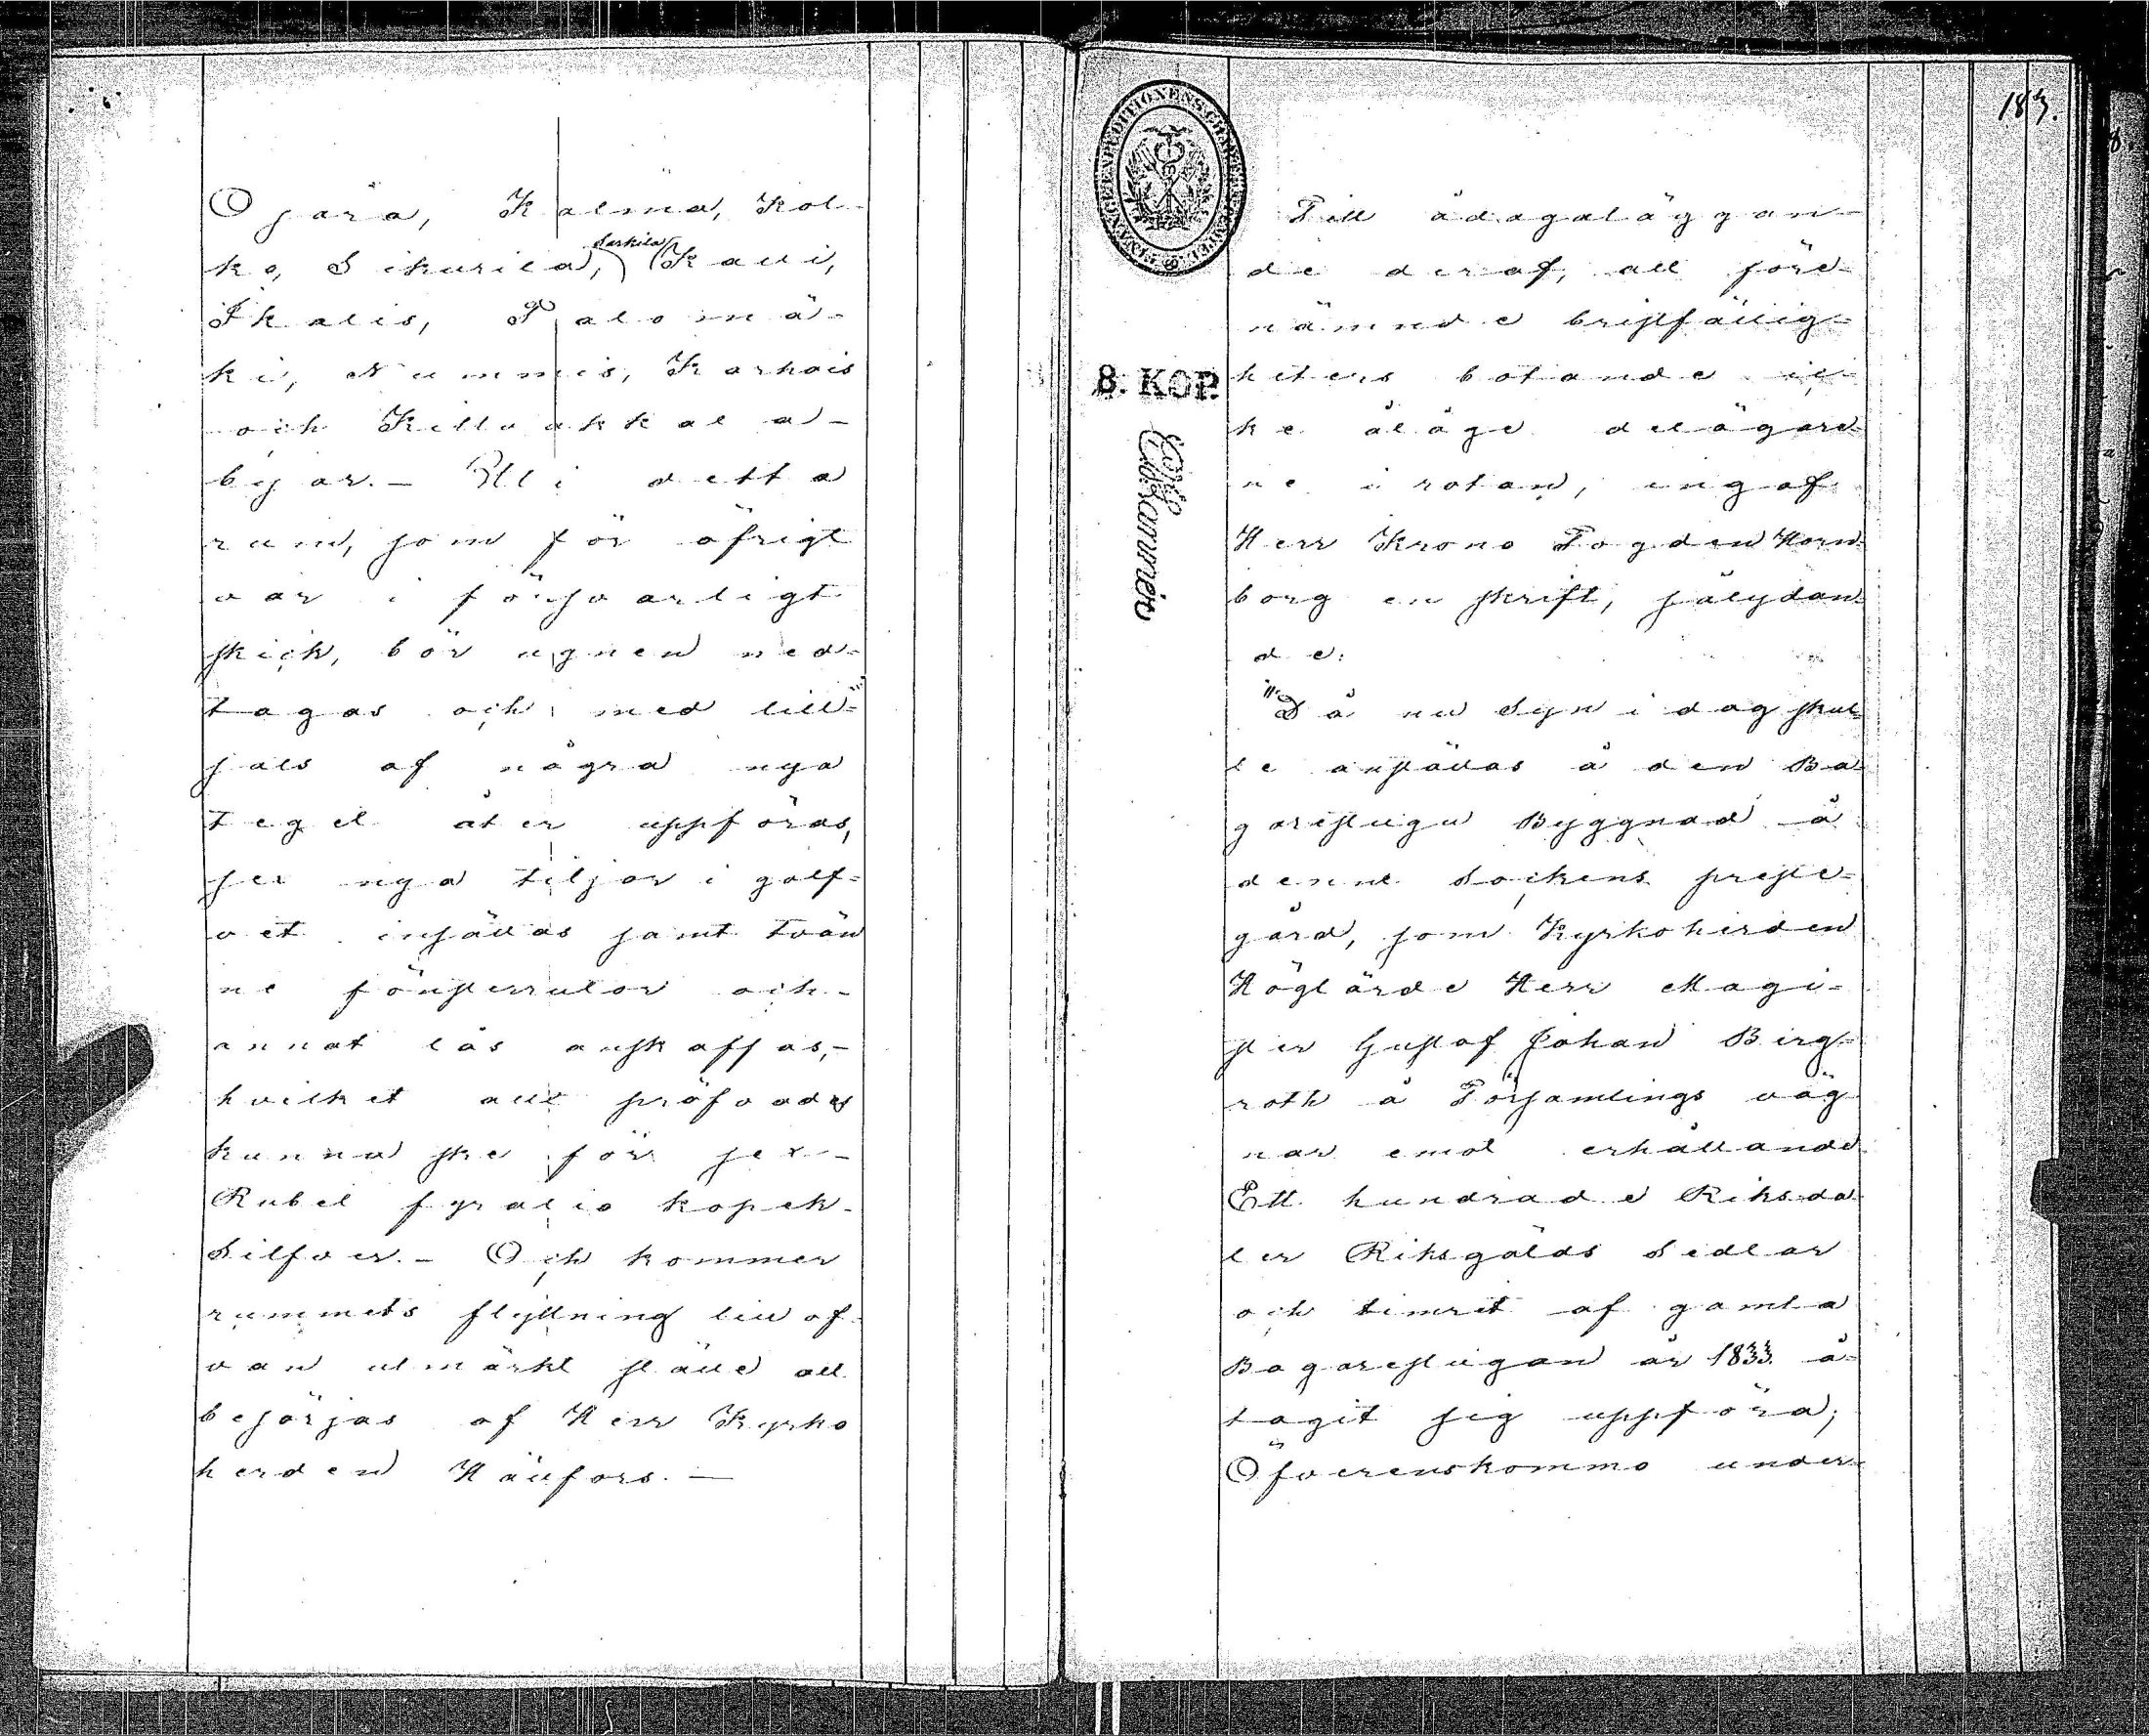 Ojara, Kalma, Kol-
ko, Sikurila, Sarkila Kaui,
Ikalis, Palomä-
ki, Nummis, Karhois
och Killuakkala
byar. — Uti detta
rum, som för öfrigt
var i försvarligt
skick, bör ugnen ned-
tagas och med till-
sats af några nya
tegel åter uppföras,
sex nya tiljor i golf-
vet insättas samt tvän
ne fönsterrutor och
annat lås anskaffas, —
hvilket allt pröfvades
kunna ske för sex
Rubel fyratio kopek
Silfver. — Och kommer
rummets flyttning till of-
van utmärkt ställe att
besörjas af Herr Kyrko
herden Hällfors. —
183.
8. KOP.
Till ådagaläggan-
de deraf, att före-
nämnde bristfällig-
heters botande ic-
ke åläge delägare-
ne i rotan, ingaf
Herr Krono Fogden Horn-
borg en skrift, sålydan-
de:
"Då nu Syn i dag skul-
le anställas å den Ba-
garestugu Byggnad å
denne Sockens preste-
gård, som Kyrkoherden
Höglärde Herr Magi-
ster Gustaf Johan Berg-
roth å Församlings väg
nar emot erhållande
Ett hundrade Riksda
ler Riksgälds Sedlar
och timret af gamla
Bagarestugan år 1833. å-
tagit sig uppföra;
Öfverenskommo under-